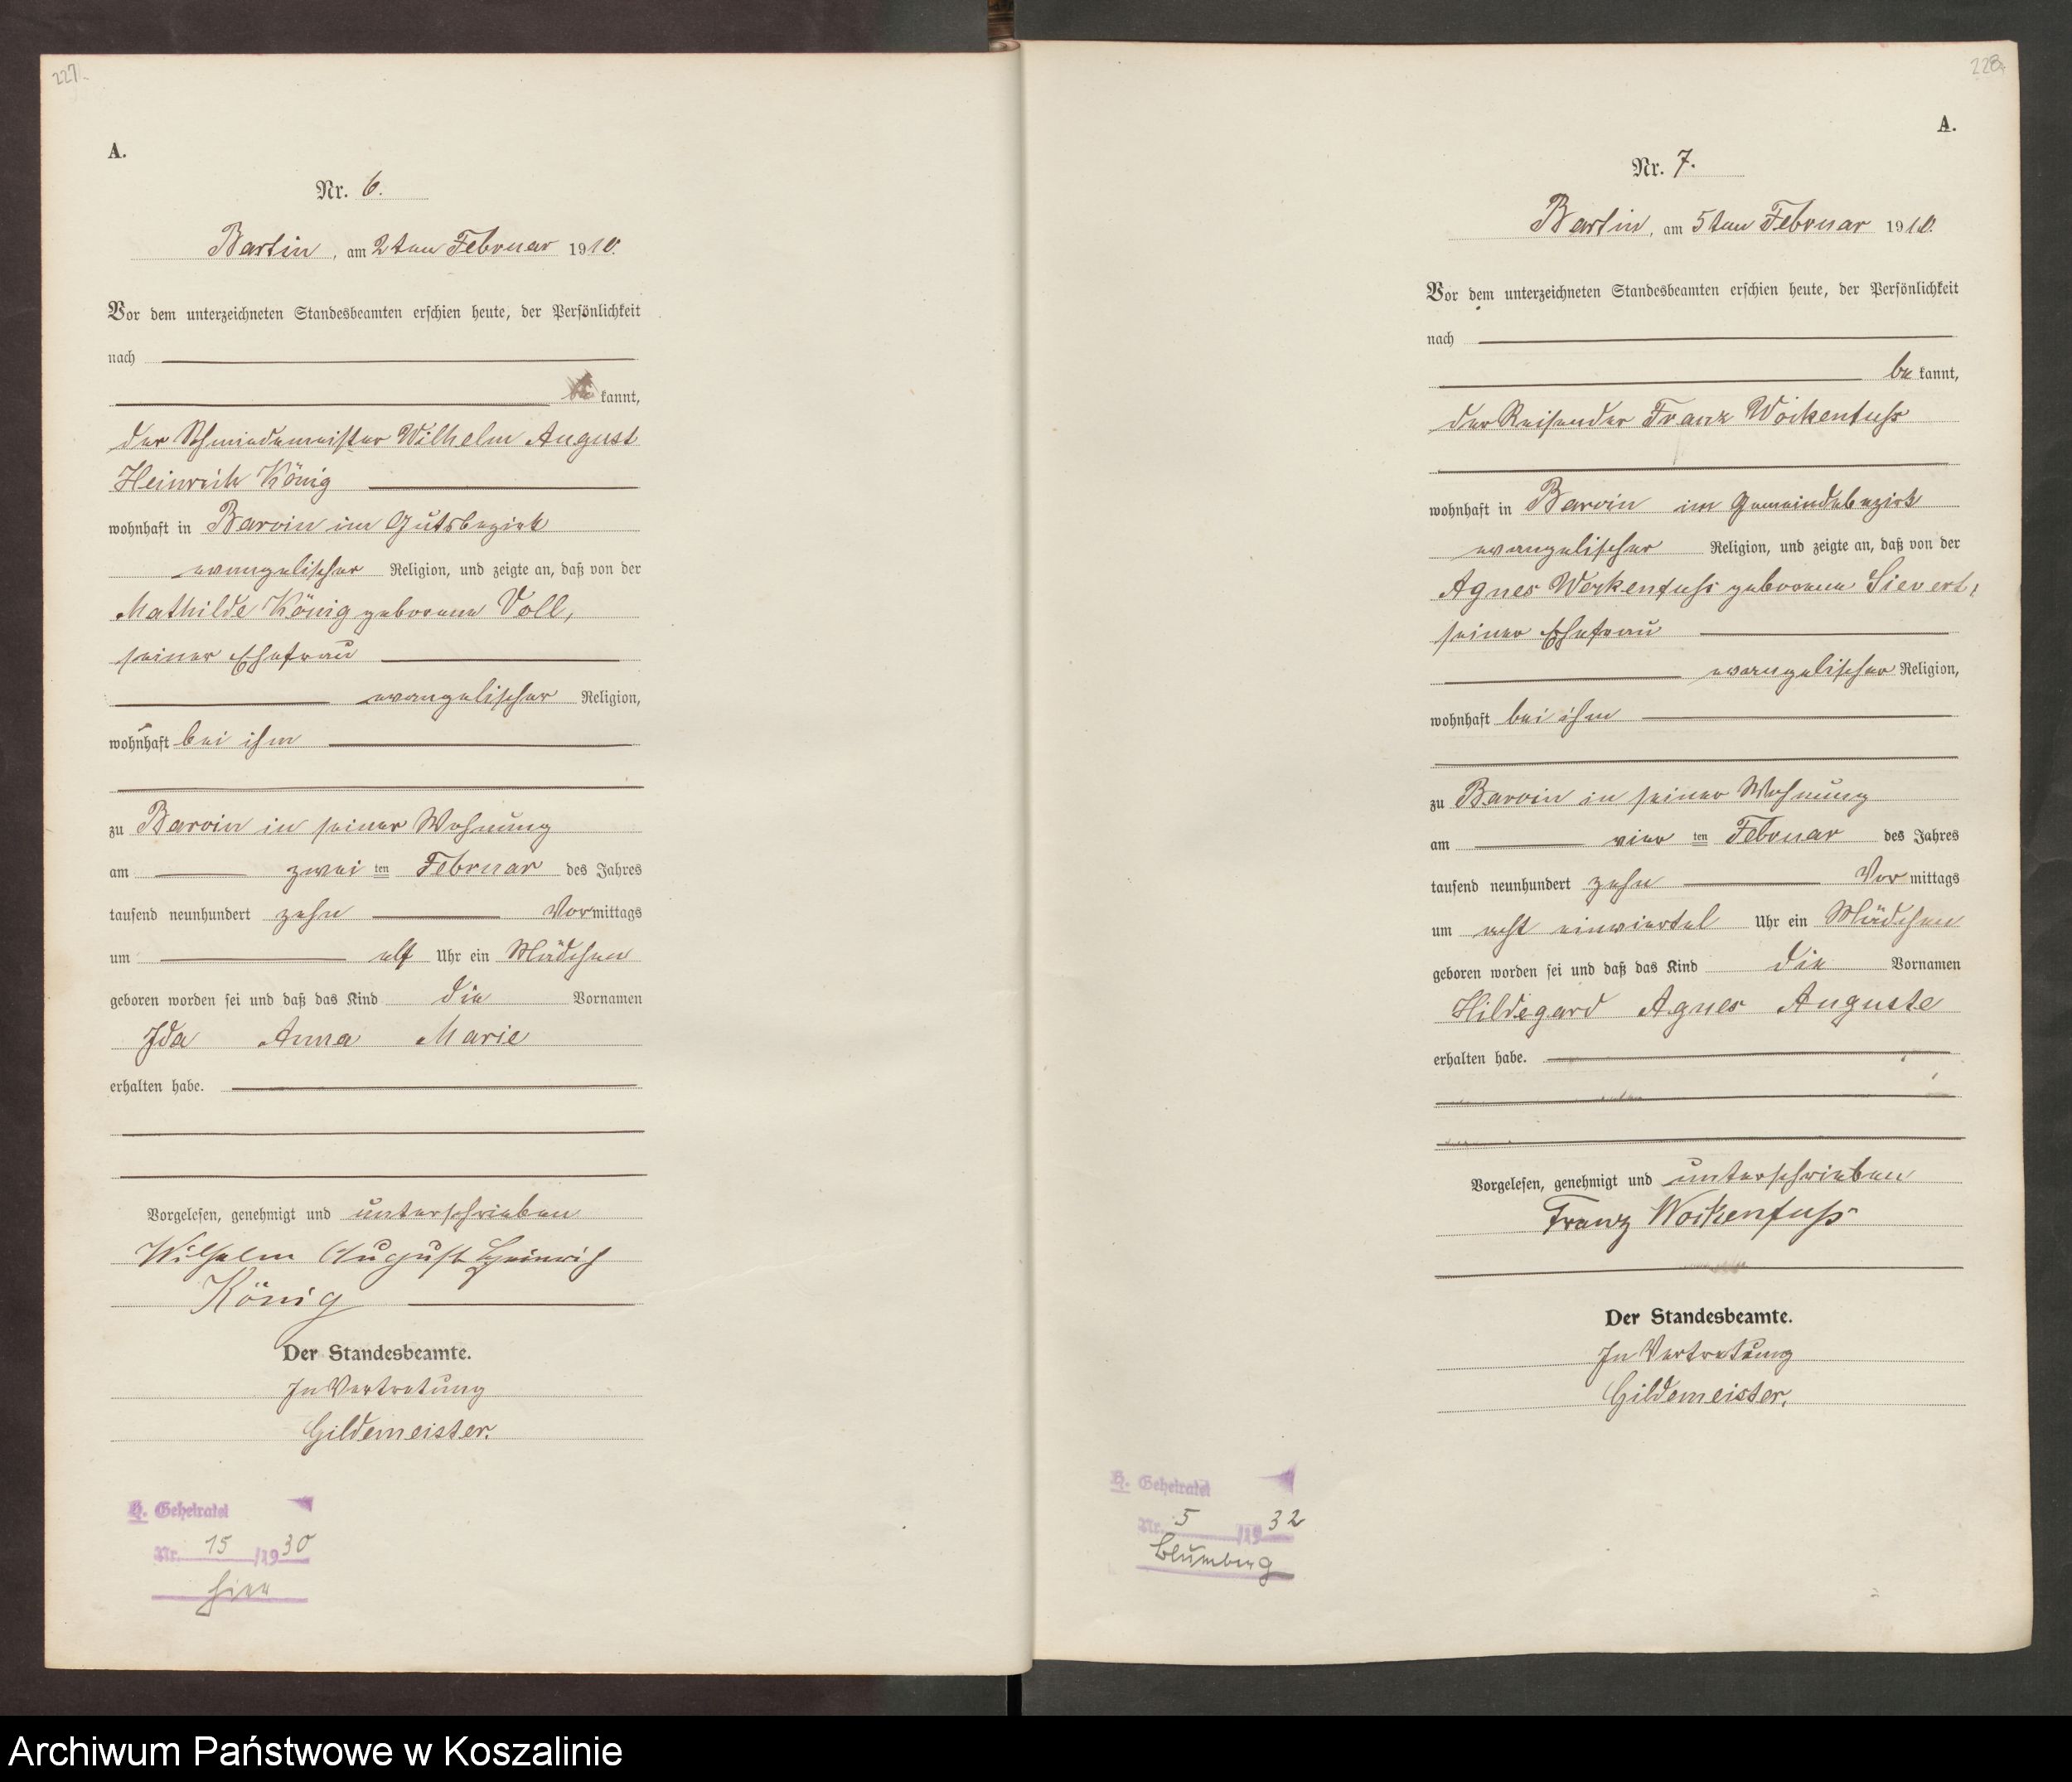 227.
A.
Nr. 6.
Bartin, am 2ten Februar 1910.
Vor dem unterzeichneten Standesbeamten erschien heute, der Persönlichkeit
nach
be kannt,
der Schmiedemeister Wilhelm August
Heinrich König
wohnhaft in Barvin im Gutsbezirk
evangelischer Religion, und zeigte an, daß von der
Mathilde König geborene Voll,
seiner Ehefrau
evangelischer Religion,
wohnhaft bei ihm
zu Barvin in seiner Wohnung
am zwei ten Februar des Jahres
tausend neunhundert zehn Vormittags
um elf Uhr ein Mädchen
geboren worden sei und daß das Kind die Vornamen
Ida Anna Marie
erhalten habe.
Vorgelesen, genehmigt und unterschrieben
Wilhelm August Heinrich
König
Der Standesbeamte.
In Vertretung
Gildemeister.
H. Geheiratet
Nr. 15 /1930
hier
228.
A.
Nr. 7.
Bartin, am 5ten Februar 1910.
Vor dem unterzeichneten Standesbeamten erschien heute, der Persönlichkeit
nach
be kannt,
der Reisender Franz Wockenfuss
wohnhaft in Barvin im Gemeindebezirk
evangelischer Religion, und zeigte an, daß von der
Agnes Wockenfuss geborene Sievert,
seiner Ehefrau
evangelischer Religion,
wohnhaft bei ihm
zu Barvin in seiner Wohnung
am vier ten Februar des Jahres
tausend neunhundert zehn Vor mittags
um acht einviertel Uhr ein Mädchen
geboren worden sei und daß das Kind die Vornamen
Hildegard Agnes Auguste
erhalten habe.
Vorgelesen, genehmigt und unterschrieben
Franz Wockenfuß
Der Standesbeamte.
In Vertretung
Gildemeister.
H. Geheiratet
Nr. 5 /1932
Blumberg
Archiwum Państwowe w Koszalinie